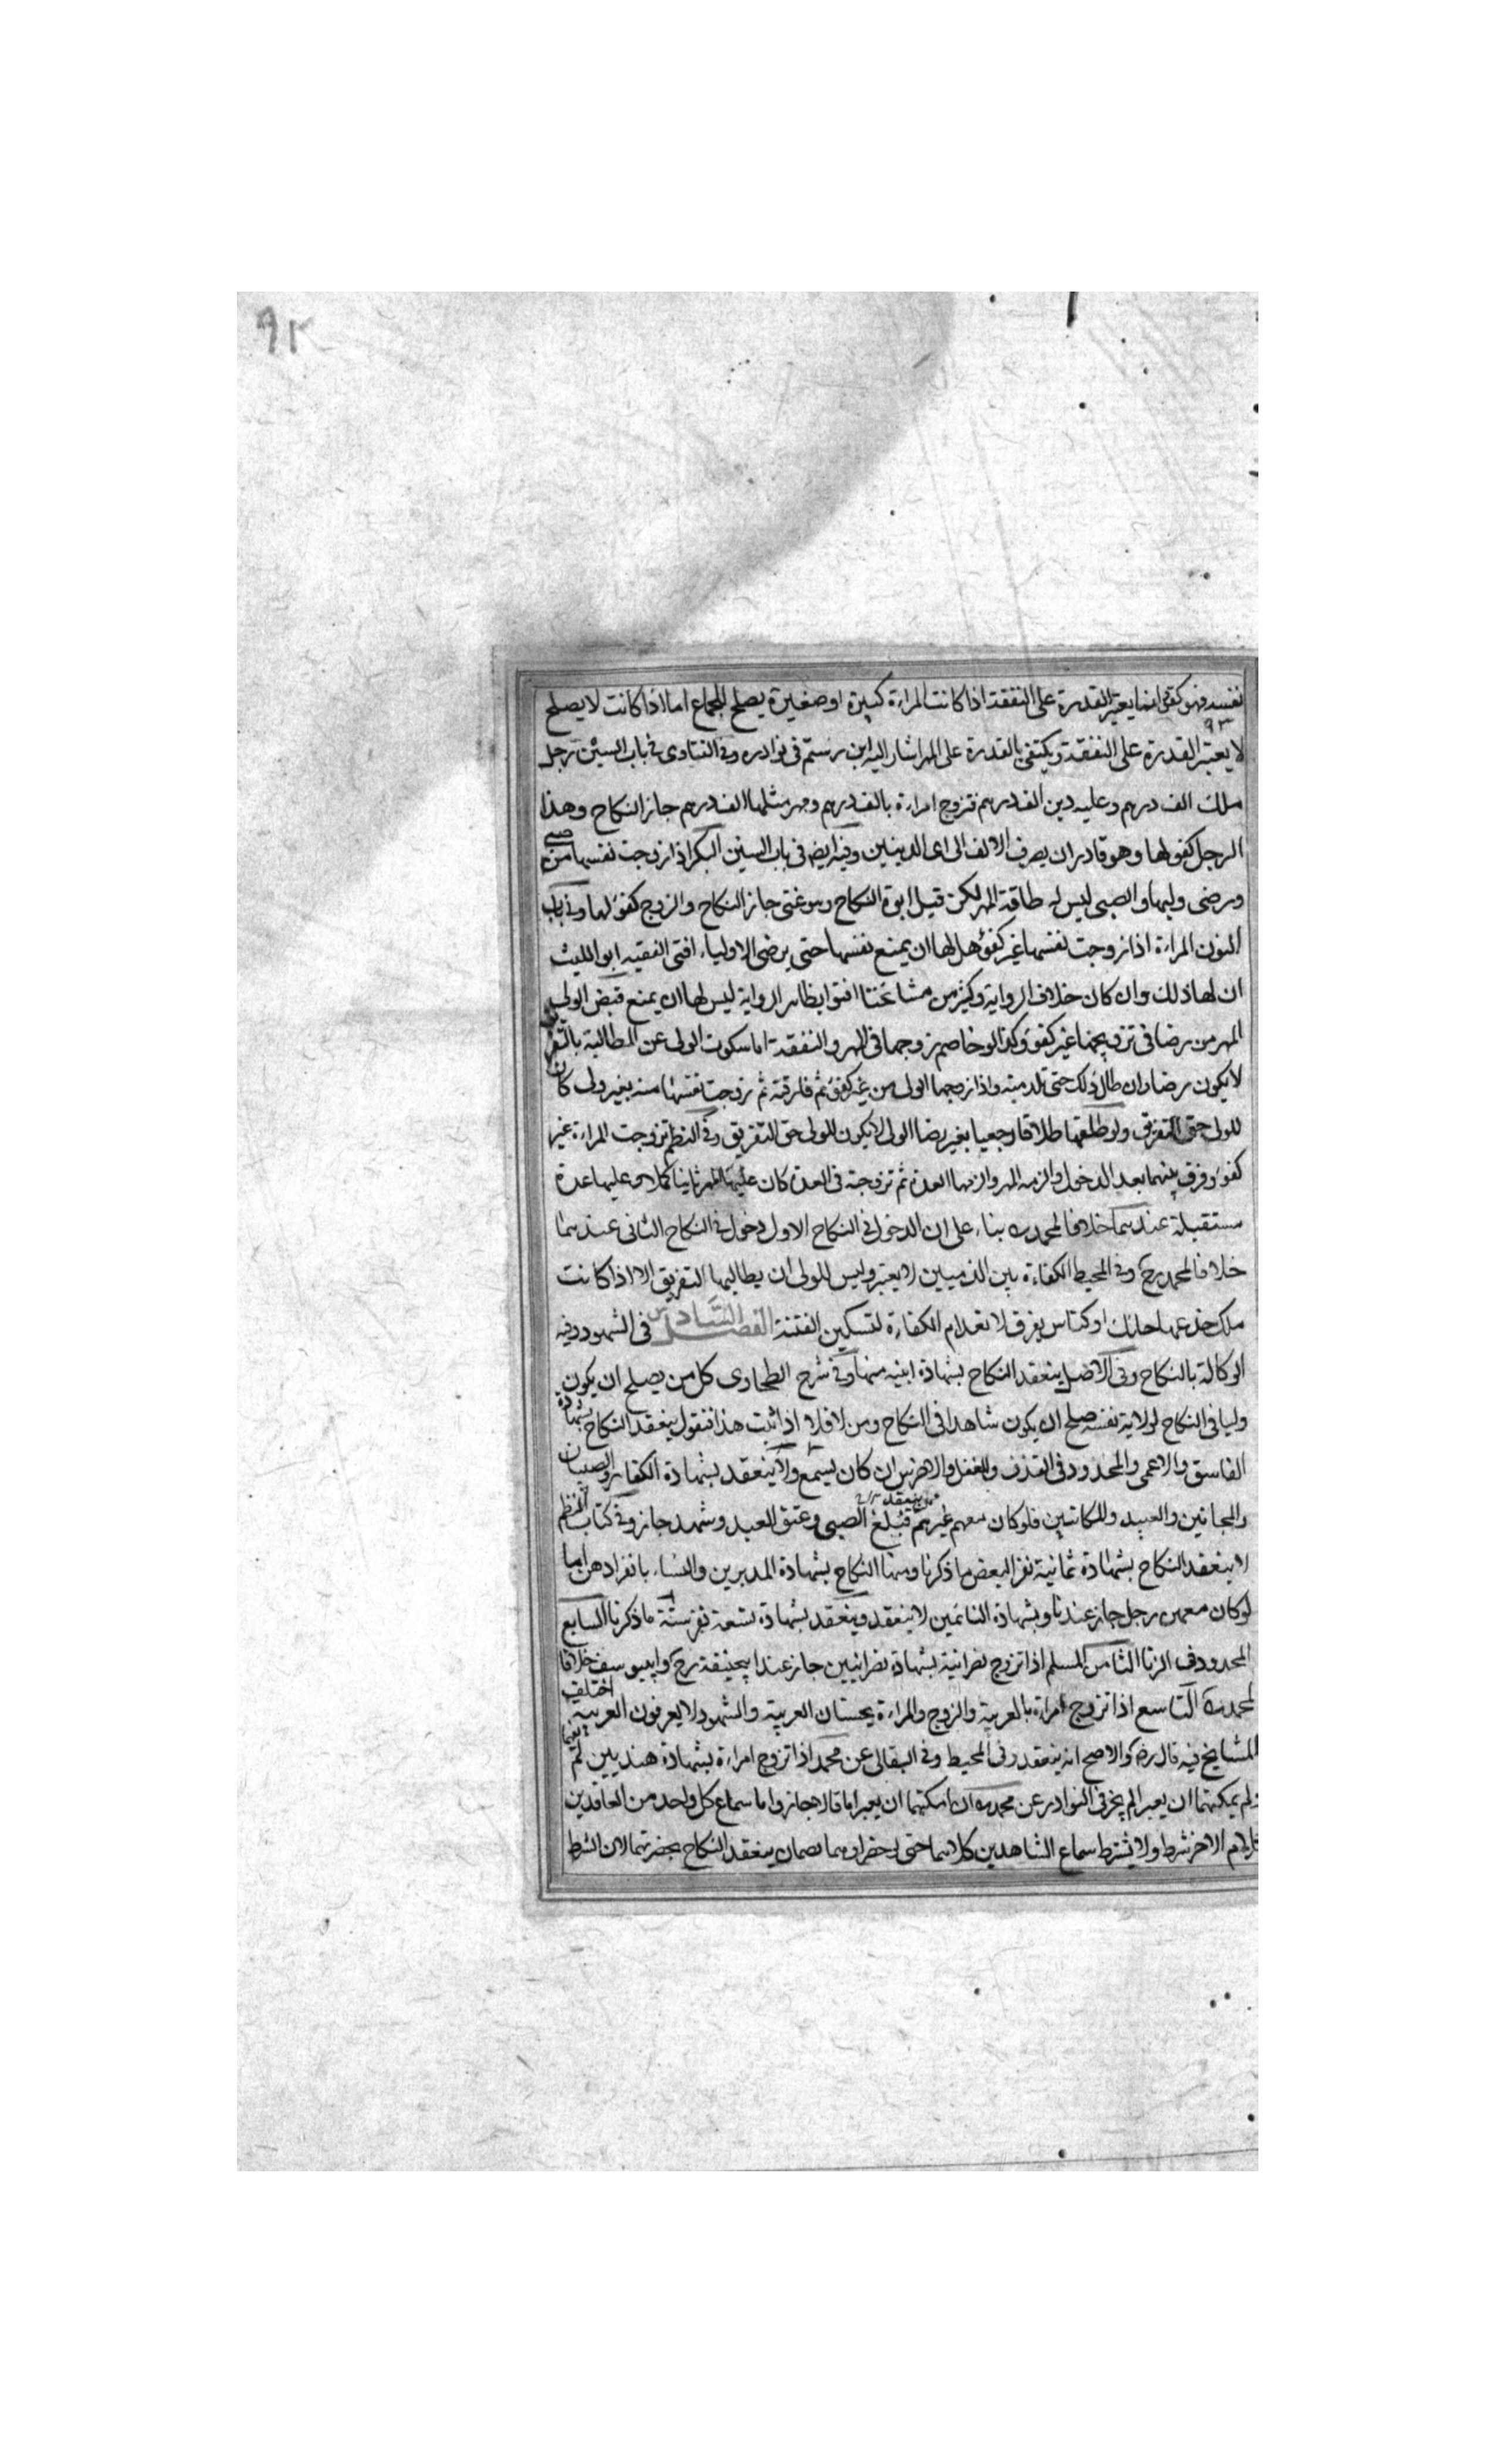 ٩٢
نفسه فهو كفؤ انما يعتبر القدرة على النفقة اذا كانت المراءة كبيرة او صغيرة يصلح للجماع اما اذا كانت لا يصلح
٩٣
لا يعتبر القدرة على النفقة ويكتفى بالقدرة على المهر اشار اليه ابن رستم فى نوادره وفى الفتاوى فى باب السين رجل
ملك الف درهم وعليه دين الف درهم فتزوج امراءة بالف درهم ومهر مثلها الف درهم جاز النكاح وهذا
الرجل كفو لها وهو قادر ان يصرف الالف الى اى الدينين وفيه ايضا فى باب السين البكر اذا زوجت نفسها من صبى
ورضى وليها والصبى ليس له طاقة المهر لكن قبل ابوه النكاح وهو غنى جاز النكاح والزوج كفؤ لها وفى باب
النون المراءة اذا زوجت نفسها غير كفؤ هل لها ان يمنع نفسها حتى يرضى الاولياء افتى الفقيه ابو الليث
ان لها ذلك وان كان خلاف الرواية وكثير من مشائخنا افتوا بظاهر الرواية ليس لها ان يمنع قبض الولى
المهر من رضا فى تزويجها غير كفؤ وكذا لو خاصم زوجها فى المهر والنفقة اما سكوت الولى عن المطالبة بالتفريق
لا يكون رضا وان طال ذلك حتى تلد منه واذا زوجها الولى من غير كفؤ ثم فارقته ثم زوجت نفسها منه بغير ولى كان
للولى حق التفريق ولو طلقها طلاقا رجعيا بغير رضا الولى لا يكون للولى حق التفريق وفى النظم تزوجت المراءة غير
كفؤ وفرق بينهما بعد الدخول والزمه المهر والزمها العدة ثم تزوجته فى العدة كان عليها المهر ثانيا كملا وعليها عدة
مستقبلة عندهما خلافا لمحمد بناء على ان الدخول فى النكاح الاول دخول فى النكاح الثانى عندهما
خلافا لمحمد رح وفى المحيط الكفاءة بين الذميين لا يعتبر وليس للولى ان يطالبها التفريق الا اذا كانت
ملك خدعها حائك او كناس يفرق لا نعدام الكفاءة لتسكين الفتنة الفصل السادس فى الشهود وفيه
الوكالة بالنكاح وفى الاصل ينعقد النكاح بشهادة ابنيه منها وفى شرح الطحاوى كل من يصلح ان يكون
وليا فى النكاح لولاية نفسه صلح ان يكون شاهدا فى النكاح ومن لا فلا اذا ثبت هذا فنقول ينعقد النكاح بشهادة
الفاسق والاعمى والمحدود فى القذف والمغفل والاخرس ان كان يسمع ولا ينعقد بشهادة الكفار والصبيان
والمجانين والعبيد والمكاتبين فلو كان معهم غيرهم ممن ينعقد فبلغ الصبى وعتق العبد وشهد جاز وفى كتاب النظم
لا ينعقد النكاح بشهادة ثمانية نفر البعض ما ذكرنا ومنها النكاح بشهادة المدبرين والنساء بانفرادهن اما
لو كان معهن رجل جاز عندنا وبشهادة النائمين لا ينعقد وينعقد بشهادة تسعة نفر ستة ما ذكرنا السابع
المحدود فى الزنا الثامن المسلم اذا تزوج نصرانية بشهادة نصرانيين جاز عند ابيحنيفة رح وابييوسف خلافا
لمحمد التاسع اذا تزوج امراءة بالعربية والزوج والمراءة يحسنان العربية والشهود لا يعرفون العربية اختلف
المشايخ فيه قال رض والاصح انه ينعقد وفى المحيط وفى البقالى عن محمد اذا تزوج امراءة بشهادة هنديين لم يفهما
ولم يمكنهما ان يعبرا لم يجز فى النوادر عن محمد ان امكنهما ان يعبرا ما قالا جاز واما سماع كل واحد من العاقدين
كلام الاخر شرط ولا يشترط سماع الشاهدين كلامهما حتى لو حضرا وهما نصمان ينعقد النكاح بحضرتهما لان الشرط